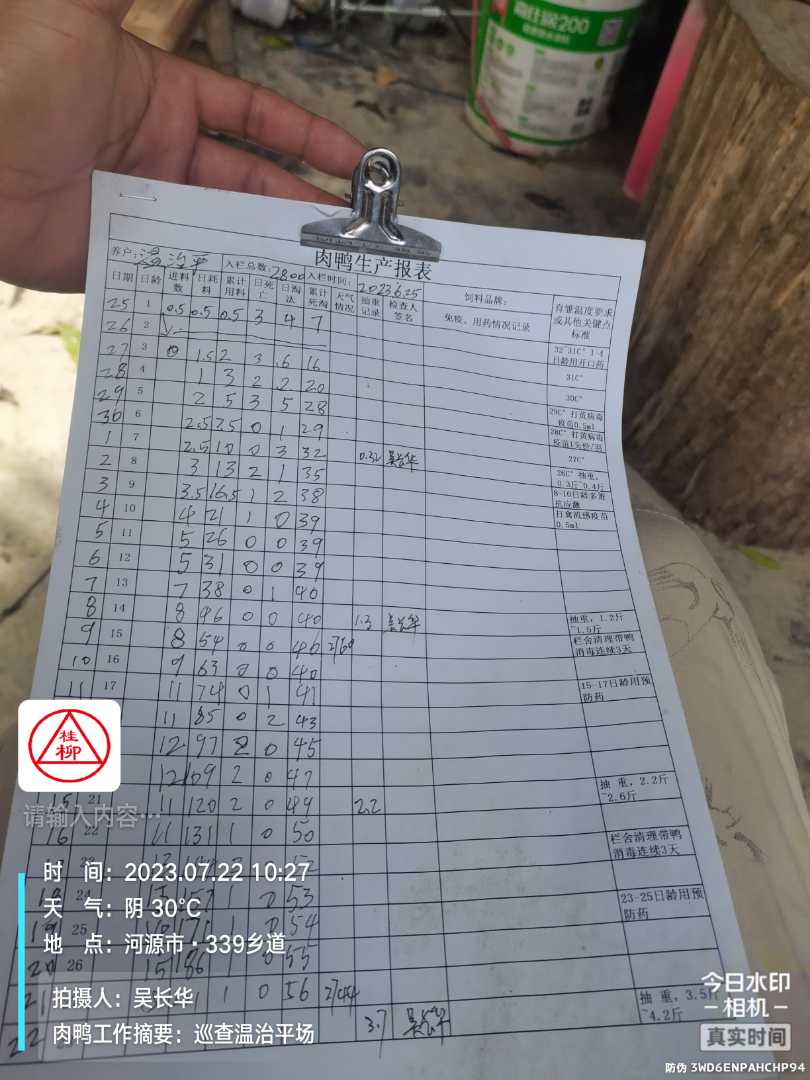 200
肉鸭生产报表
养户:温治平 入栏总数:2800 入栏时间:2023.6.25 饲料品牌:
日期 日龄 进料数 日耗料 累计用料 日死亡 日淘汰 累计死淘 天气情况 抽重记录 检查人签名 免疫、用药情况记录 育雏温度要求或其他关键点标准
25 1 0.5 0.5 0.5 3 4 7
26 2 32~31C° 1-4日龄用开口药
27 3 0 1.5 2 3 6 16 31C°
28 4 1 3 2 2 20 30C°
29 5 2 5 3 5 28 29C° 打黄病毒疫苗0.5ml
30 6 2.5 7.5 0 1 29 28C°
1 7 2.5 10 0 3 32 0.32 吴长华 27C°
2 8 3 13 2 1 35 26C° 抽重,0.3斤~0.4斤
3 9 3.5 16.5 1 2 38 8-10日龄
4 10 4 21 1 0 39 0.5ml
5 11 5 26 0 0 39
6 12 5 31 0 0 39
7 13 7 38 0 1 40
8 14 8 46 0 0 40 1.3 吴长华 抽重,1.2斤~1.5斤
9 15 8 54 0 0 40 2760 栏舍清理带鸭消毒连续3天
10 16 9 63 0 0 40
11 17 11 74 0 1 41 15-17日龄用预防药
11 85 0 2 43
12 97 2 0 45
12 109 2 0 47
15 21 11 120 2 0 49 2.2 抽重,2.2斤~2.6斤
16 22 11 131 1 0 50
栏舍清理带鸭消毒连续3天
24 1 0 53 23-25日龄用预防药
19 25 1 0 54
20 26 15 186 1 0 55
21 1 0 56 2744
22 3.7 吴长华 抽重,3.5斤~4.2斤
桂柳
请输入内容…
时 间:2023.07.22 10:27
天 气:阴 30℃
地 点:河源市·339乡道
拍摄人:吴长华
肉鸭工作摘要:巡查温治平场
今日水印
相机
真实时间
防伪 3WD6ENPAHCHP94